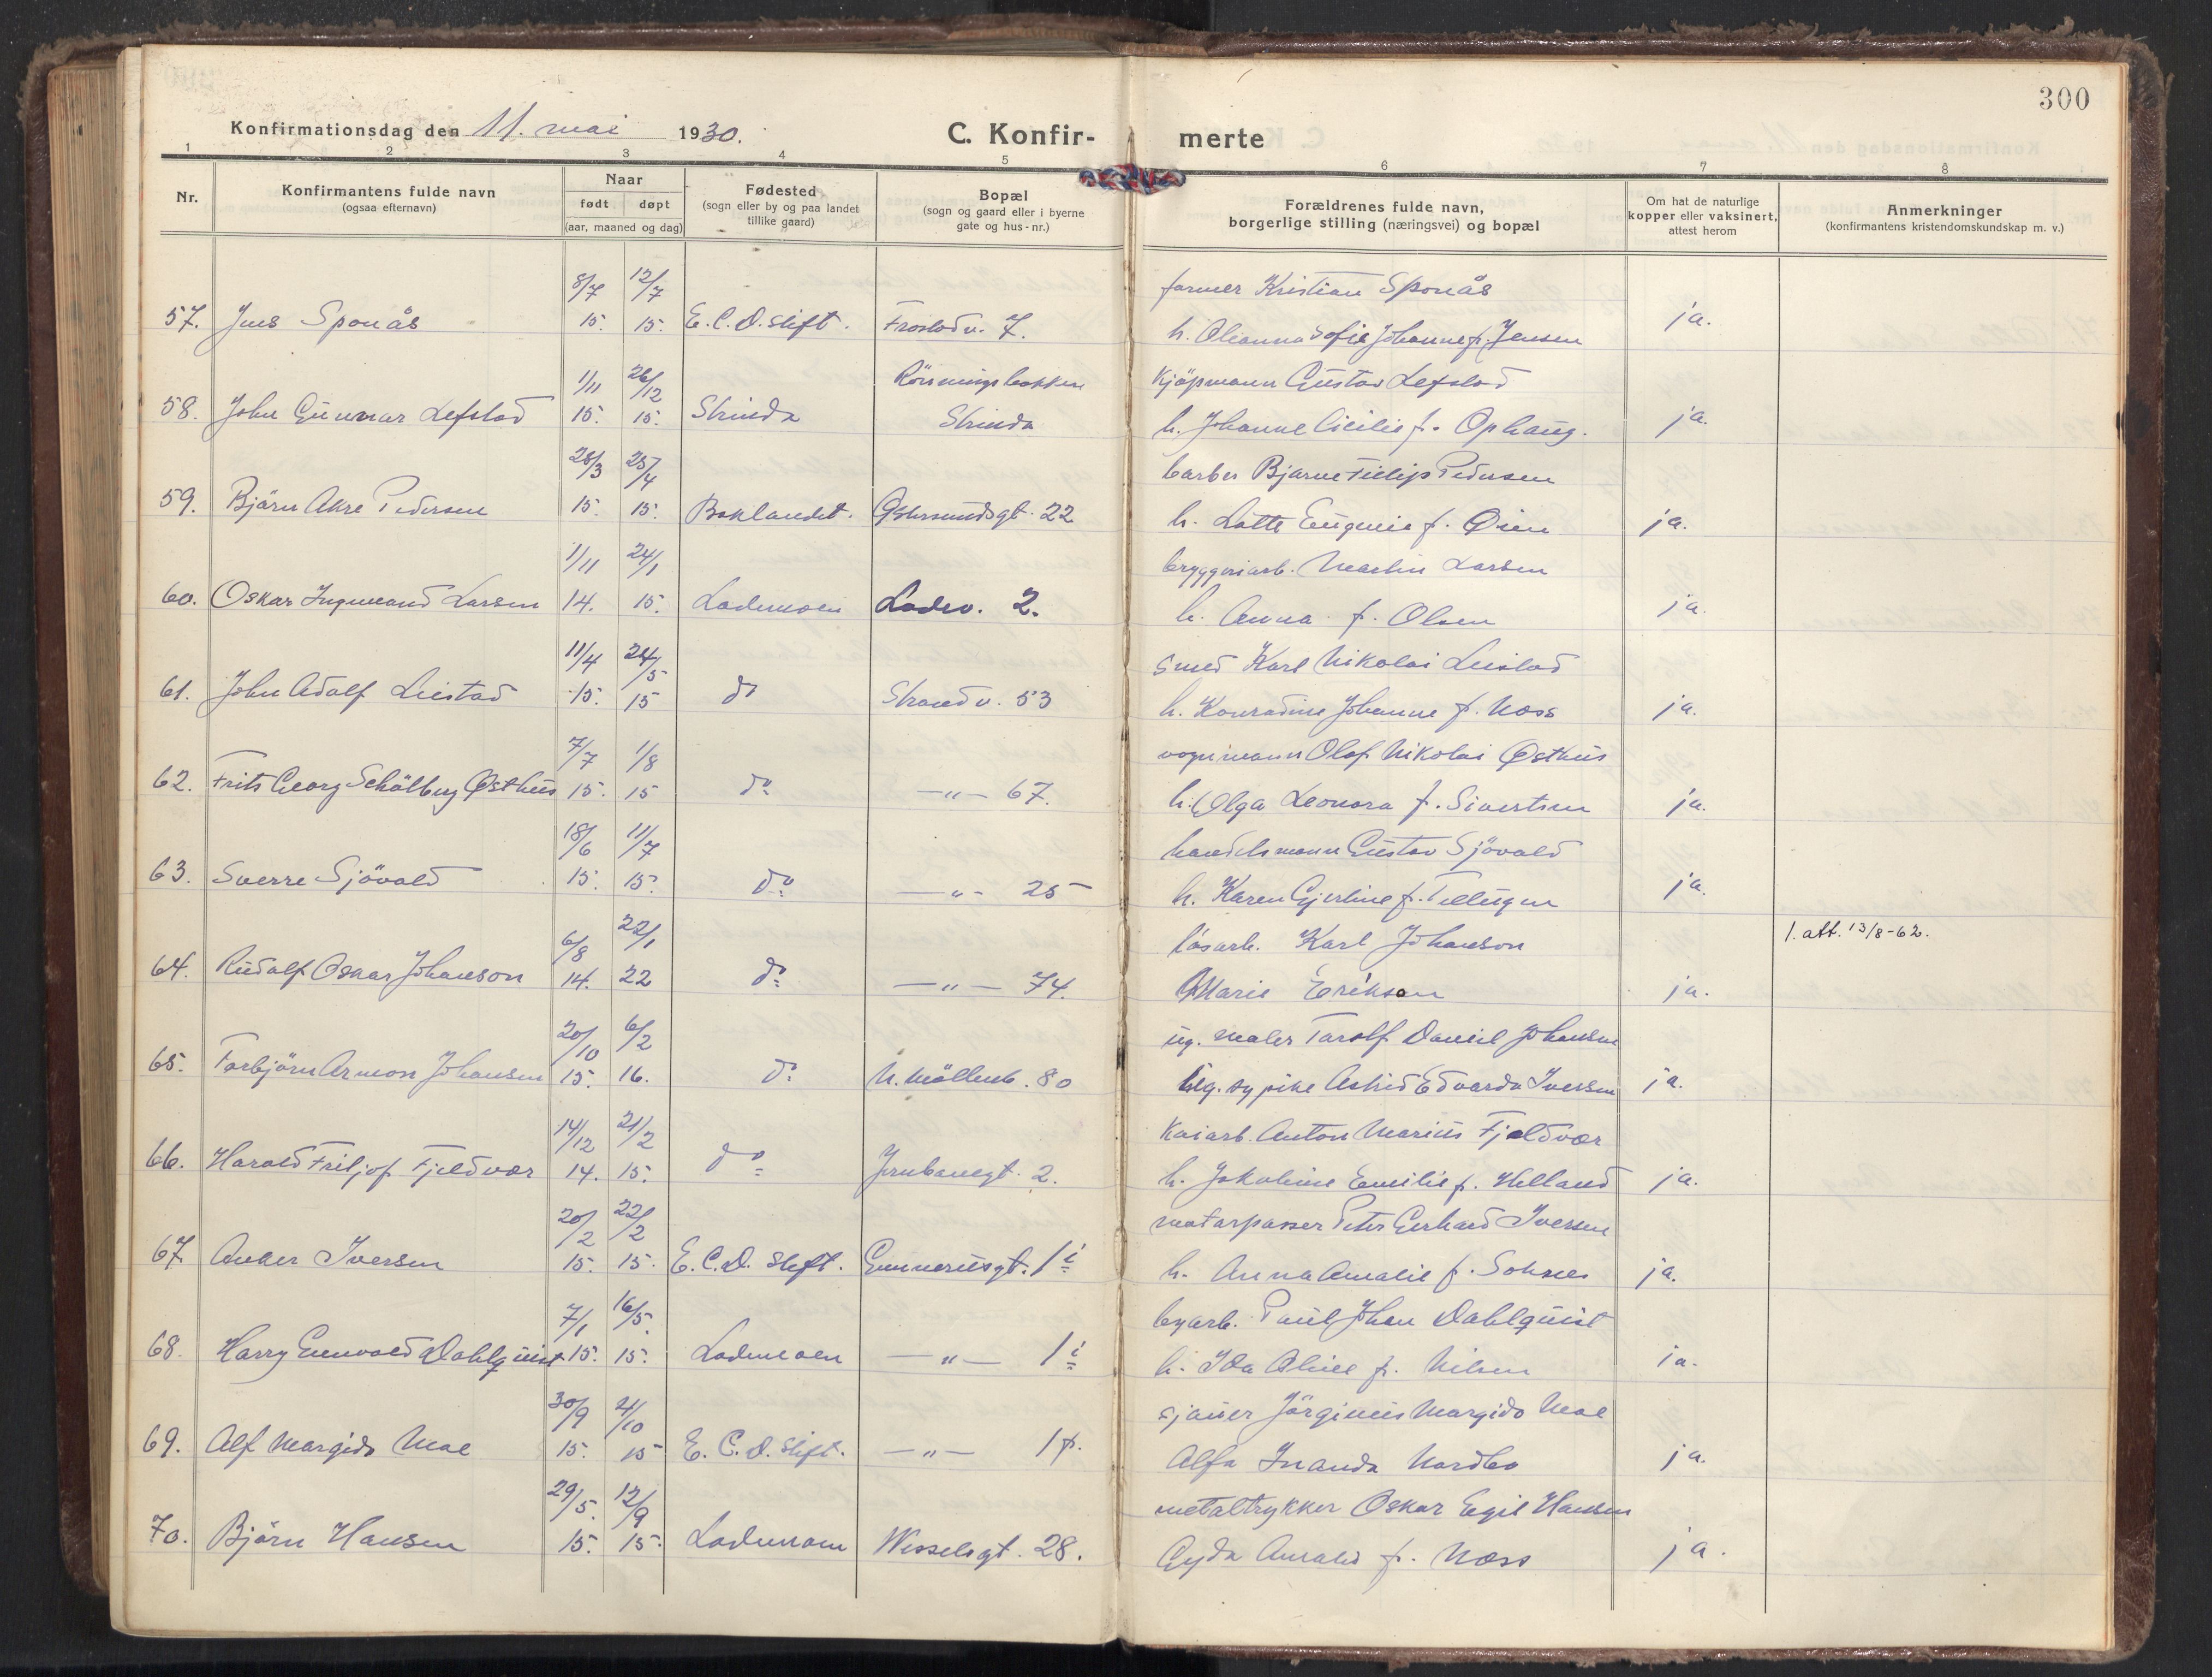 300
Konfirmationsdag den 11. mai 1930.
C. Konfir- merte
1 2 3 4 5 6 7 8
Nr.
Konfirmantens fulde navn
(ogsaa efternavn)
Naar
født døpt
(aar, maaned og dag)
Fødested
(sogn eller by og paa landet
tillike gaard)
Bopæl
(sogn og gaard eller i byerne
gate og hus-nr.)
Forældrenes fulde navn,
borgerlige stilling (næringsvei) og bopæl
Om hat de naturlige
kopper eller vaksinert,
attest herom
Anmerkninger
(konfirmantens kristendomskundskap m. v.)
8/7 12/7 farmer Kristian Sponås
57. Jens Sponås 15. 15. E.C.D. stift. Frostadv. 7. h. Oleanna Sofie Johanne f. Jensen ja.
1/11 26/12 Rönningsbakken Kjöpmann Gustav Lefstad
58. John Gunnar Lefstad 15. 15. Strinda Strinda h. Johanne Cicilie f. Ophaug. ja.
28/3 25/4 barber Bjarne Fillip Pedersen
59. Björn Akre Pedersen 15. 15. Baklandet. Østersundsgt. 22 h. Lotte Eugenie f. Øien ja.
1/11 24/1 bryggeriarb. Martin Larsen
60. Oskar Ingemand Larsen 14. 15. Lademoen Ladev. 2. h. Anna f. Olsen ja.
11/4 24/5 Smed Karl Nikolai Leistad
61. John Adolf Leistad 15. 15 do Strandv. 53 h. Konradine Johanne f. Næss ja.
7/7 1/8 vognmann Olaf Nikolai Østhus
62. Frits Georg Schölberg Østhus 15. 15 do —"— 67. h. Olga Leonora f. Sivertsen ja.
18/6 11/7 handelsmann Gustav Sjövold
63. Sverre Sjövold 15. 15. do —"— 25 h. Karen Gjertine f. Tellugen ja.
6/8 22/1 lösarb. Karl Johanson 1. att. 13/8-62.
64. Rudolf Oskar Johanson 14. 22 do —"— 74. Marie Erikson ja.
20/10 6/2 ug. maler Torolf Daniel Johansen
65. Torbjörn Armon Johansen 15. 16. do N. Möllenb. 80 ug. sypike Astrid Edvarda Iversen ja.
14/12 21/2 Kaiarb. Anton Marius Fjeldvær
66. Harald Fritjof Fjeldvær 14. 15. do Jernbanegt. 2. h. Jakobine Emilie f. Helland ja.
20/2 22/2 motorpasser Peter Gerhard Iversen
67 Anker Iversen 15. 15. E.C.D. stift. Gunnerusgt. 1 i h. Anna Amalie f. Soknes ja.
7/1 16/5. byarb. Paul Johan Dahlquist
68. Harry Enevold Dahlquist 15. 15. Lademoen —"— 1 i h. Ida Oline f. Nilsen ja.
30/9 4/10 sjauer Jörginus Margido Moe
69. Alf Margido Moe 15. 15 E.C.D. stift. —"— 1 p. Alfa Inanda Nordbo ja.
29/5. 12/9 metaltrykker Oskar Egil Hansen
70. Björn Hansen 15. 15. Lademoen Wesselsgt. 28. Gyda Amalie f. Næss ja.